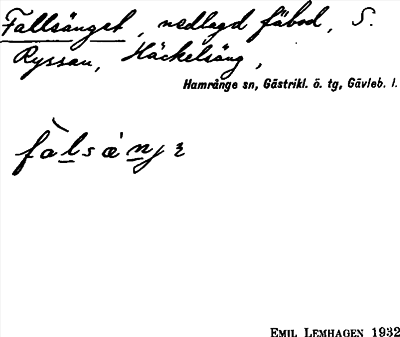 Fallsänget, nedlagd fäbod, S.
Ryssau, Häckelsäng,
Hamrånge sn, Gästrikl. ö. tg, Gävleb. l.
EMIL LEMHAGEN 1932